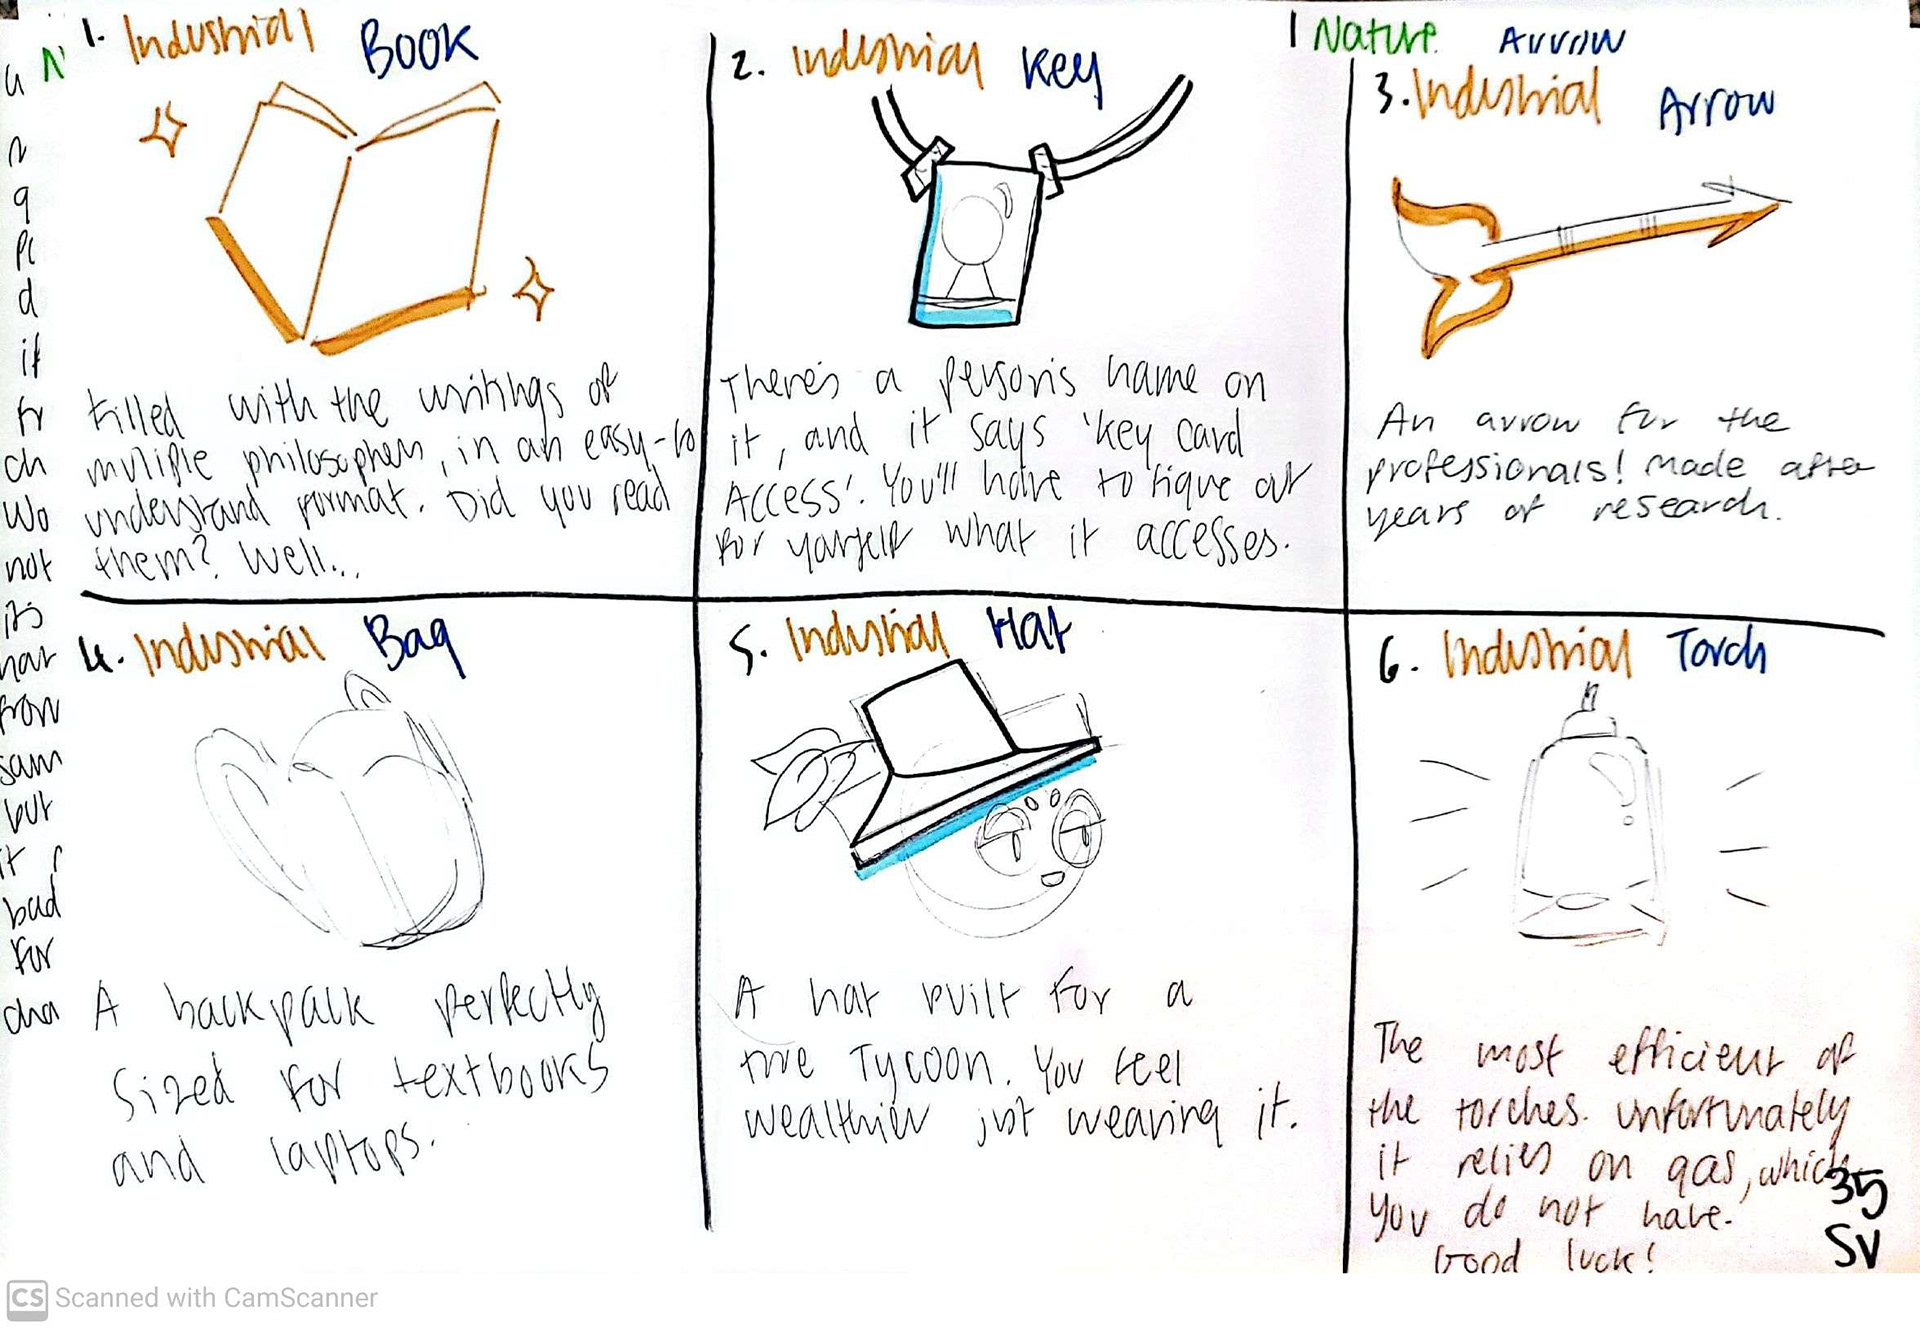 1. Industrial Book
Filled with the writings of
multiple philosophers, in an easy-to
understand format. Did you read
them? Well...
2. Industrial Key
There's a person's name on
it, and it says 'key card
Access'. You'll have to figure out
for yourself what it accesses.
1 Nature Arrow
3. Industrial Arrow
An arrow for the
professionals! Made after
years of research.
4. Industrial Bag
A backpack perfectly
sized for textbooks
and laptops.
5. Industrial Hat
A hat built for a
true Tycoon. You feel
wealthier just wearing it.
6. Industrial Torch
The most efficient of
the torches. Unfortunately
it relies on gas, which
you do not have.
Good luck!
35
SV
if
fr
ch
wo
not
it's
hat
from
sam
but
it
bad
for
cha
CS Scanned with CamScanner